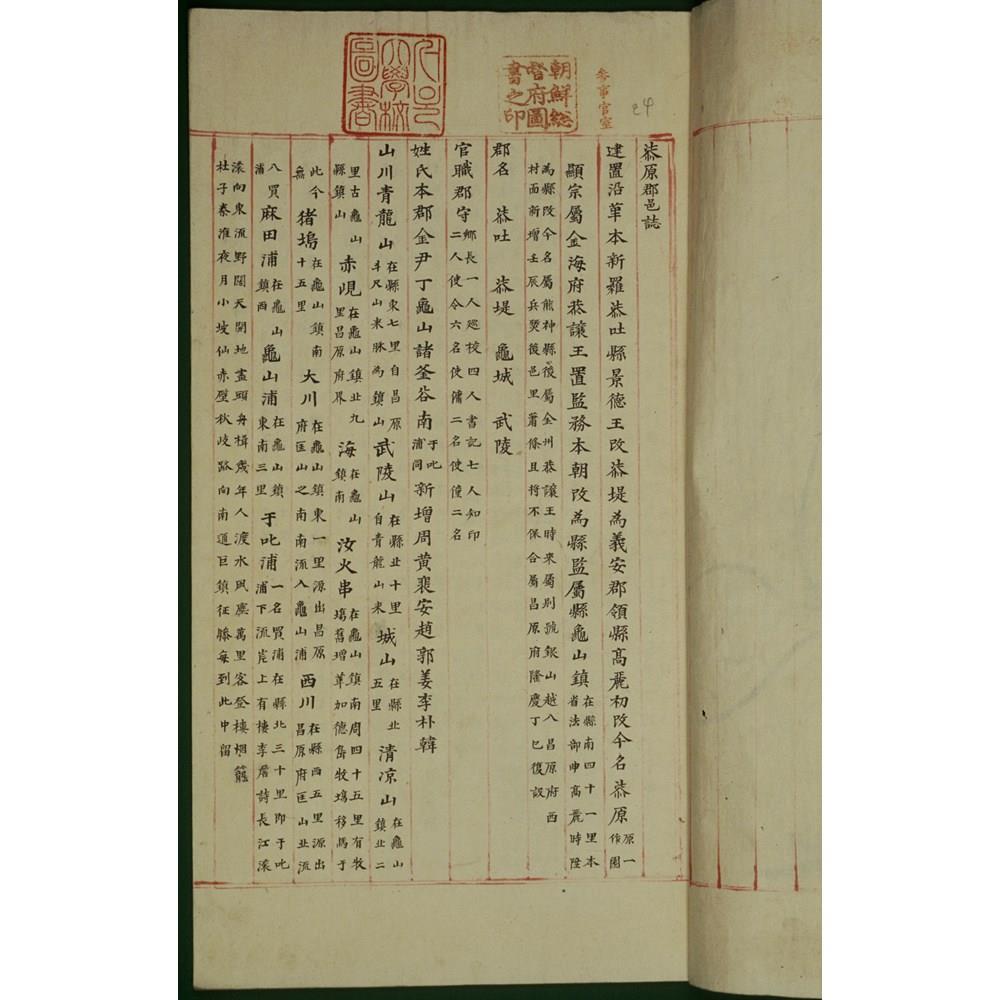 柒原郡邑誌
建置沿革本新羅柒吐縣景德王改柒堤爲義安郡領縣高麗初改今名柒原原一作園
顯宗屬金海府恭讓王置監務本朝改爲縣監屬縣龜山鎭在縣南四十一里本省法部申高麗時陞
爲縣改今名屬熊神縣後屬金州恭讓王時來屬別號銀山越入昌原府西村面新增壬辰兵燹後邑里蕭條且將不保合屬昌原府隆慶丁巳復設
郡名 柒吐 柒堤 龜城 武陵
官職郡守鄕長一人巡校四人書記七人知印二人使令六名使傭二名使僮二名
姓氏本郡金尹丁龜山諸釜谷南于叱浦同新增周黃裴安趙郭姜李朴韓
山川靑龍山在縣東七里自昌原斗尺山來脉爲鎭山武陵山在縣北十里自靑龍山來城山在縣北五里淸凉山在龜山鎭北二
里古龜山縣鎭山赤峴在龜山鎭北九里昌原府界海在龜山鎭南汝火串在龜山鎭南周四十五里有牧塲舊增革加德島牧塲移馬于
此今無猪塲在龜山鎭南十五里大川在龜山鎭東一里源出昌原府匡山之南南流入龜山浦西川在縣西五里源出昌原府匡山北流
入買浦麻田浦在龜山鎭西龜山浦在龜山鎭東南三里于叱浦一名買浦在縣北三十里卽于叱浦下流岸上有樓李詹詩長江滚
滚向東流野闊天開地盡頭舟楫幾年人渡水風塵萬里客登樓烟籠杜子秦淮夜月小坡仙赤壁秋歧路向南通巨鎭征驂每到此中留
朝鮮總督府圖書之印
參事官室
24